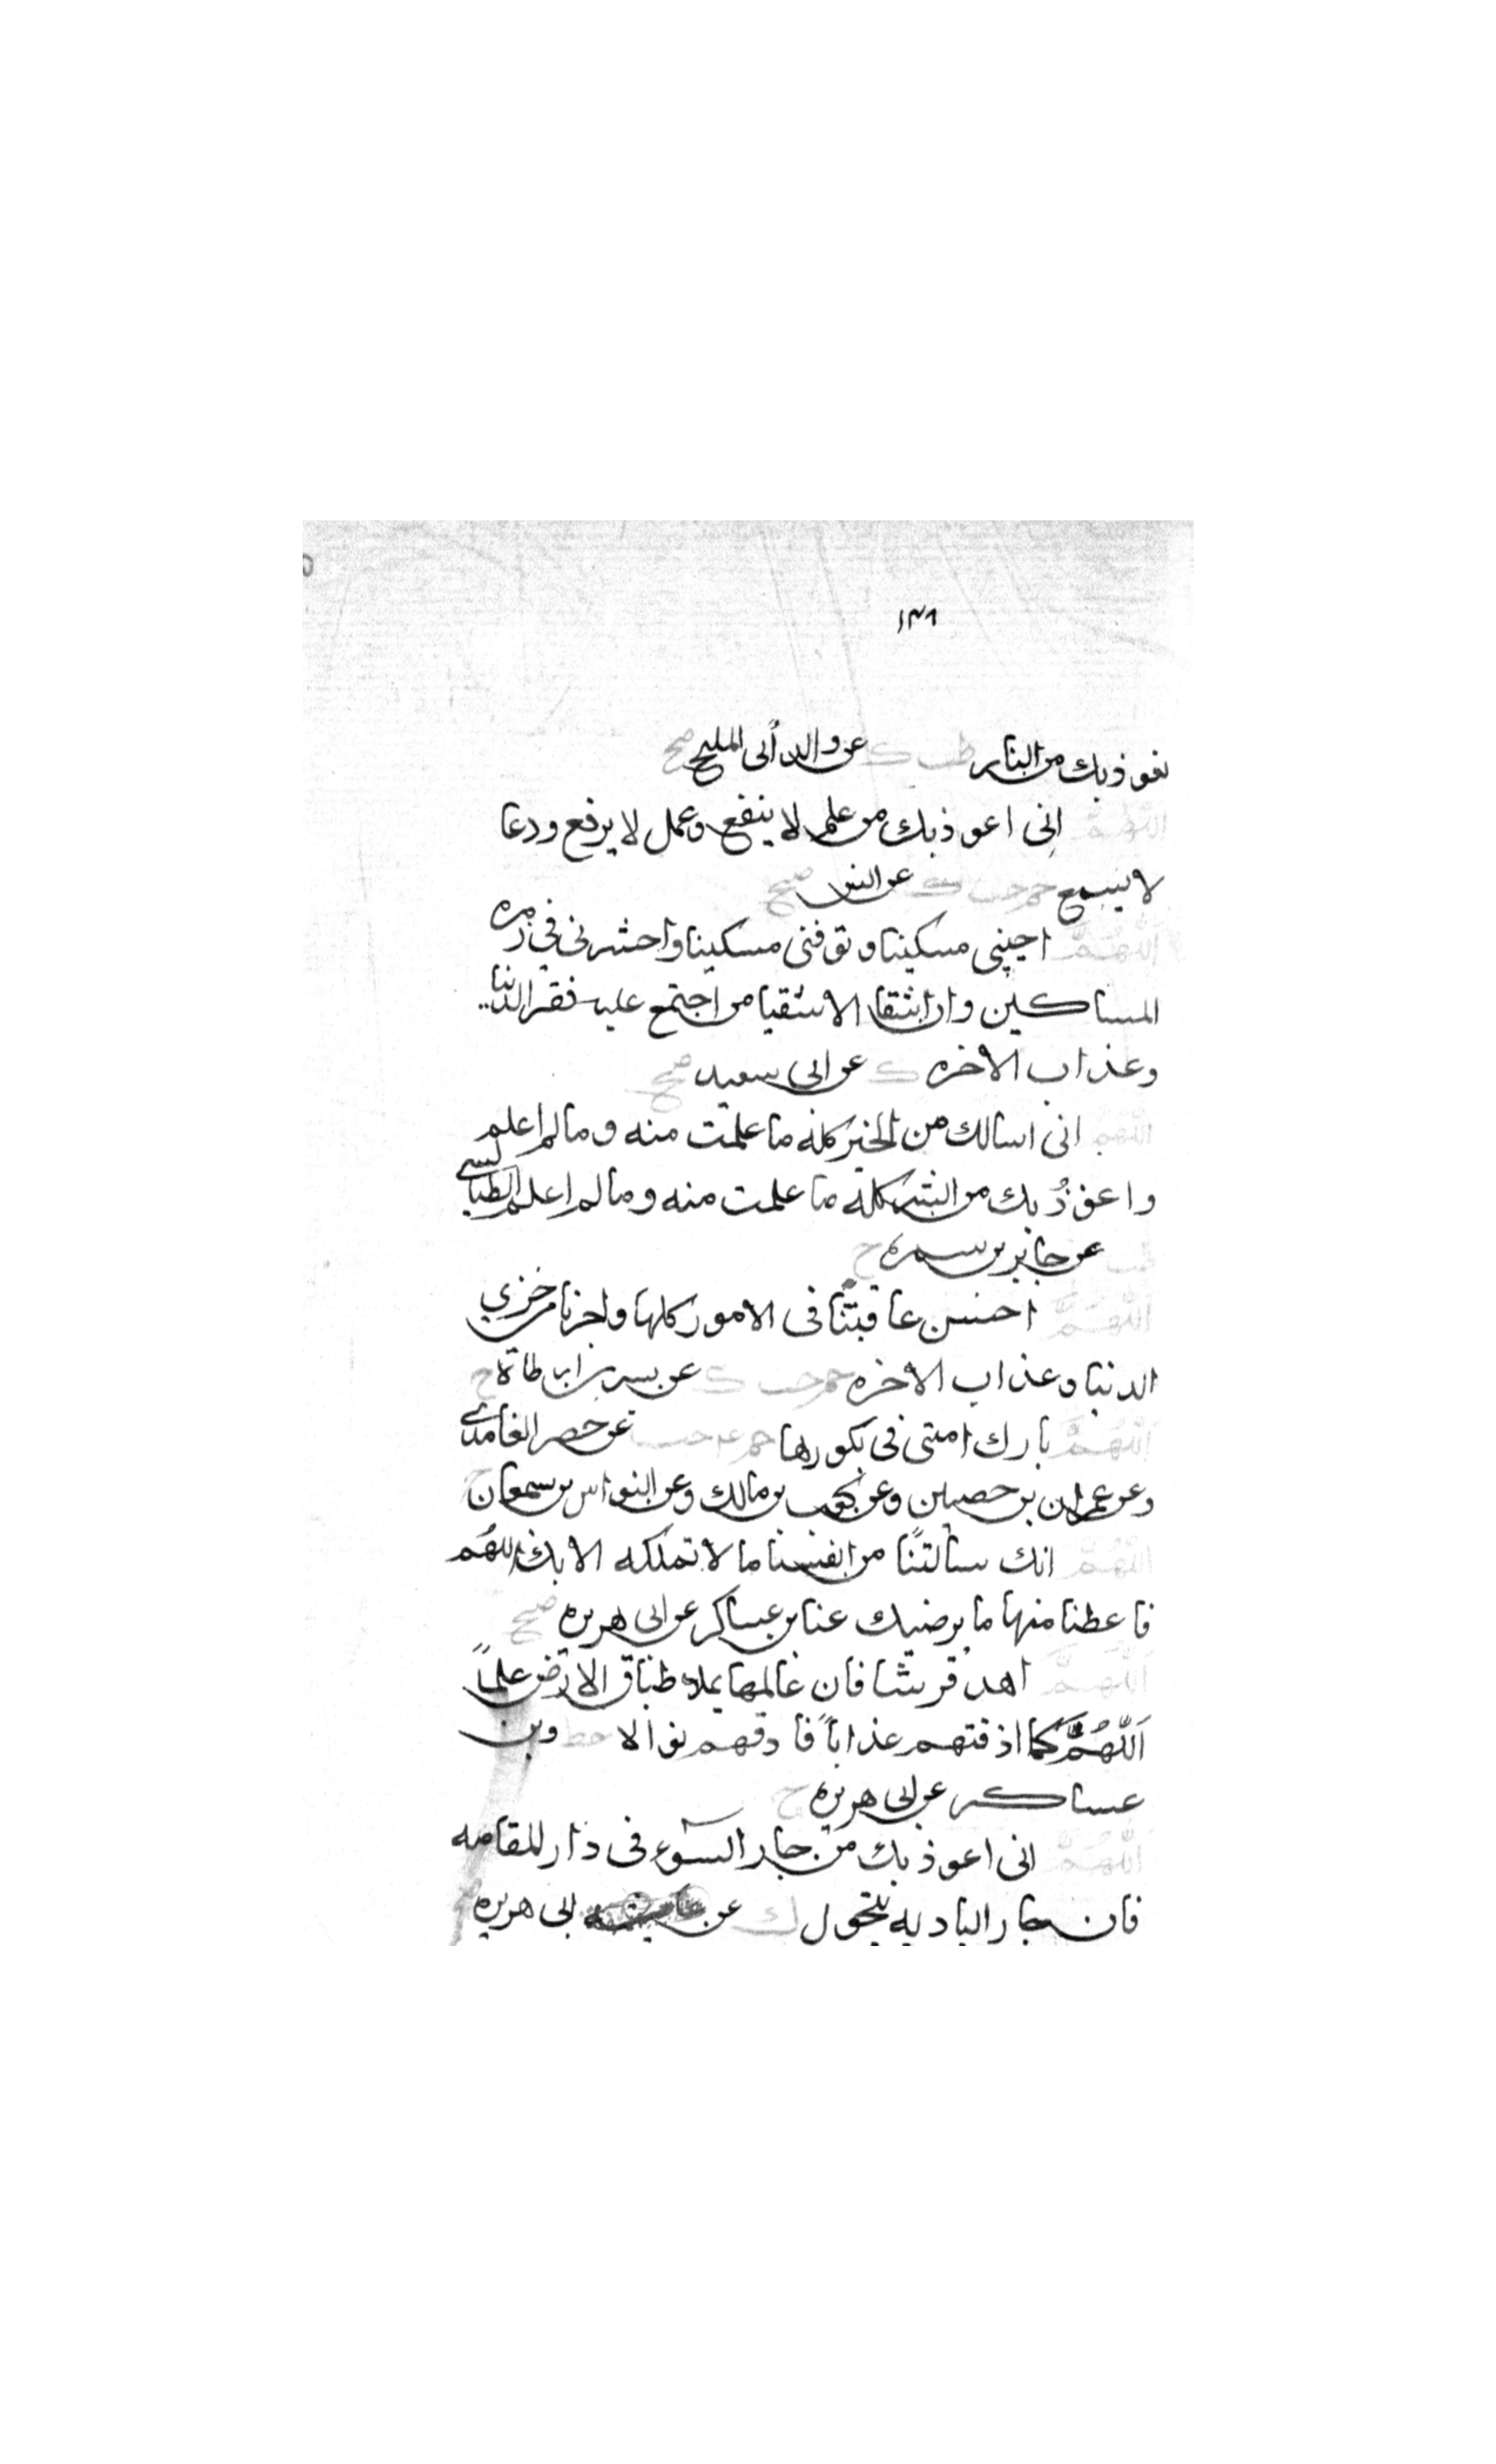 ١٣٦
نعوذ بك من النار طب ك عن والد أبى المليح صح
اللهم انى اعوذ بك من علم لا ينفع وعمل لا يرفع ودعا
لا يسمع حم حب ك عن انس صح
اللهم احينى مسكينا وتوفنى مسكينا واحشرنى فى زمره
المساكين وان اشقا الاشقيا من اجتمع عليه فقر الدنيا
وعذاب الاخره ك عن ابى سعيد صح
اللهم انى اسالك من الخير كله ما علمت منه وما لم اعلم
واعوذ بك من الشر كله ما علمت منه وما لم اعلم الطيالسى
طب عن جابر بن سمره ح
اللهم احسن عاقبتنا فى الامور كلها واجرنا من خزي
الدنيا وعذاب الاخره حم حب ك عن بسر بن ابى طاة ح
اللهم بارك امتى فى بكورها حم عم حب عن خصر الغامدى
وعن عمران بن حصين وعن كعب بن مالك وعن النواس بن سمعان ح
اللهم انك سالتنا من انفسنا ما لا تملكه الا بك اللهم
فاعطنا منها ما يرضيك عنا بن عساكر عن ابى هريره صح
اللهم اهد قريشا فان عالمها يملا طباق الارض علماً
اللهم كما اذقتهم عذاباً فاذقهم نوالا خط وبن
عساكر عن ابى هريره ح
اللهم انى اعوذ بك من جار السوء فى دار المقامه
فان جار الباديه يتحول ك عن ابى هريره صح